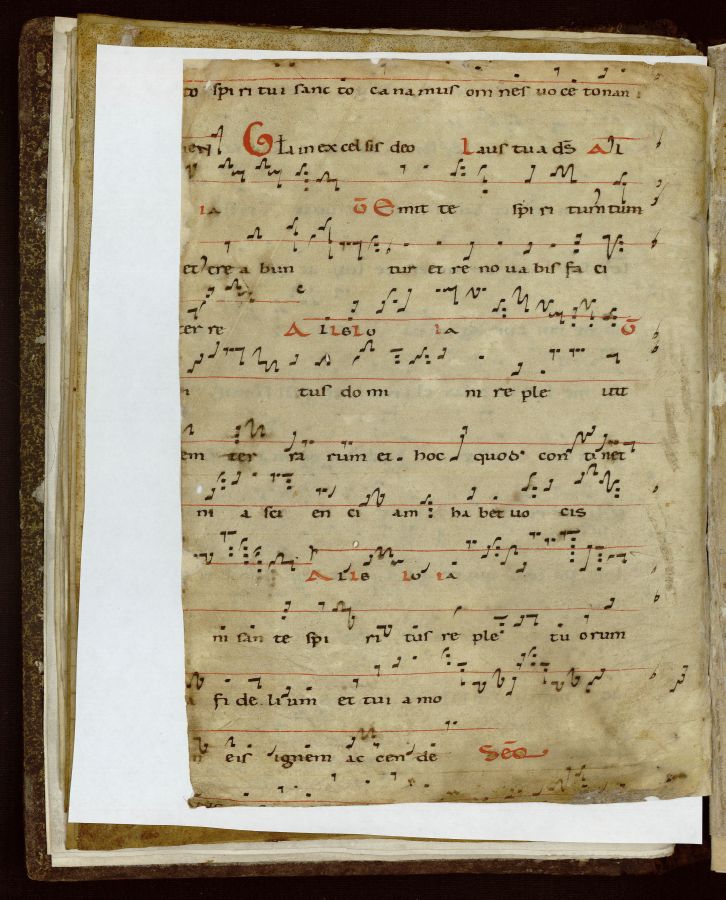 to spi ri tui sanc to ca na mus om nes uo ce to nan
Gła in ex cel sis deo Laus tu a ds̄ A ł
ia V̄ Emit te spi ri tum tum
et cre a bun tur et re no ua bis fa ci
ter re A L LE LO ia V̄
tus do mi ni re ple uit
em ter ra rum et hoc quod con ti net
ni a sci en ci am ha bet uo cis
A L LE LO ia
ni san te spi ri tus re ple tu orum
fi de li um et tui a mo
eis ignem ac cen de Seq̄